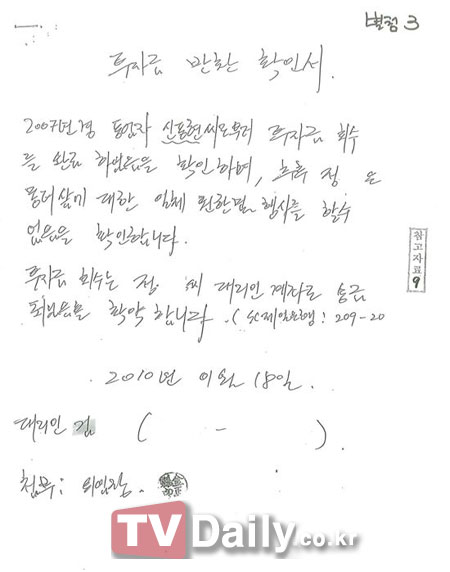 별첨 3
투자금 반환 확인서.
2007년경 동업자 씨로부터 투자금 회수
를 완료 하였음을 확인하며, 정 은
대한 일체 권한및 행사를 할수
없음을 확인합니다.
투자금 회수는 정 씨 대리인 계좌로 송금
되었음을 확약 합니다. (SC제일은행: 209-20
참고자료 9
2010년 18일.
대리인 김 ( - ).
첨부: 위임장.
TVDaily.co.kr